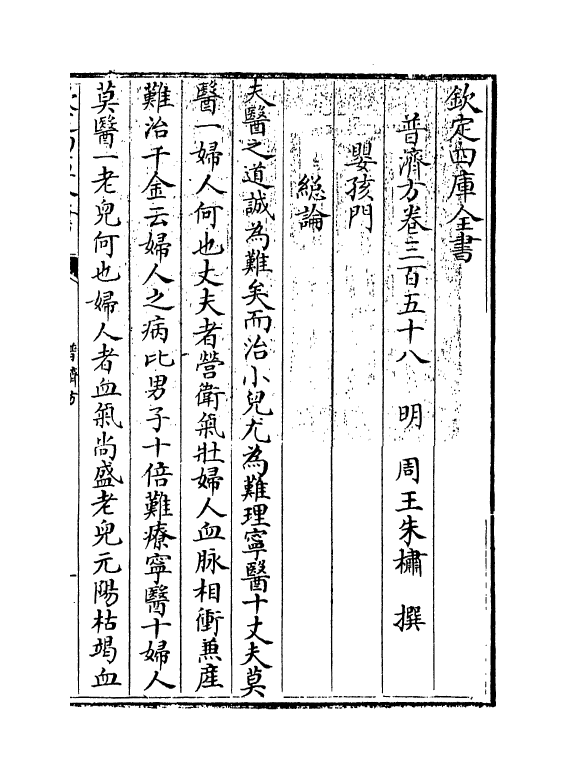 欽定四庫全書
普濟方卷三百五十八　明　周王朱橚　撰
嬰孩門
緫論
夫醫之道誠為難矣而治小兒尤為難理寧醫十丈夫莫
醫一婦人何也丈夫者營衛氣壯婦人血脉相衝兼産
難治千金云婦人之病比男子十倍難療寧醫十婦人
莫醫一老兒何也婦人者血氣尚盛老兒元陽枯竭血
普濟方
一